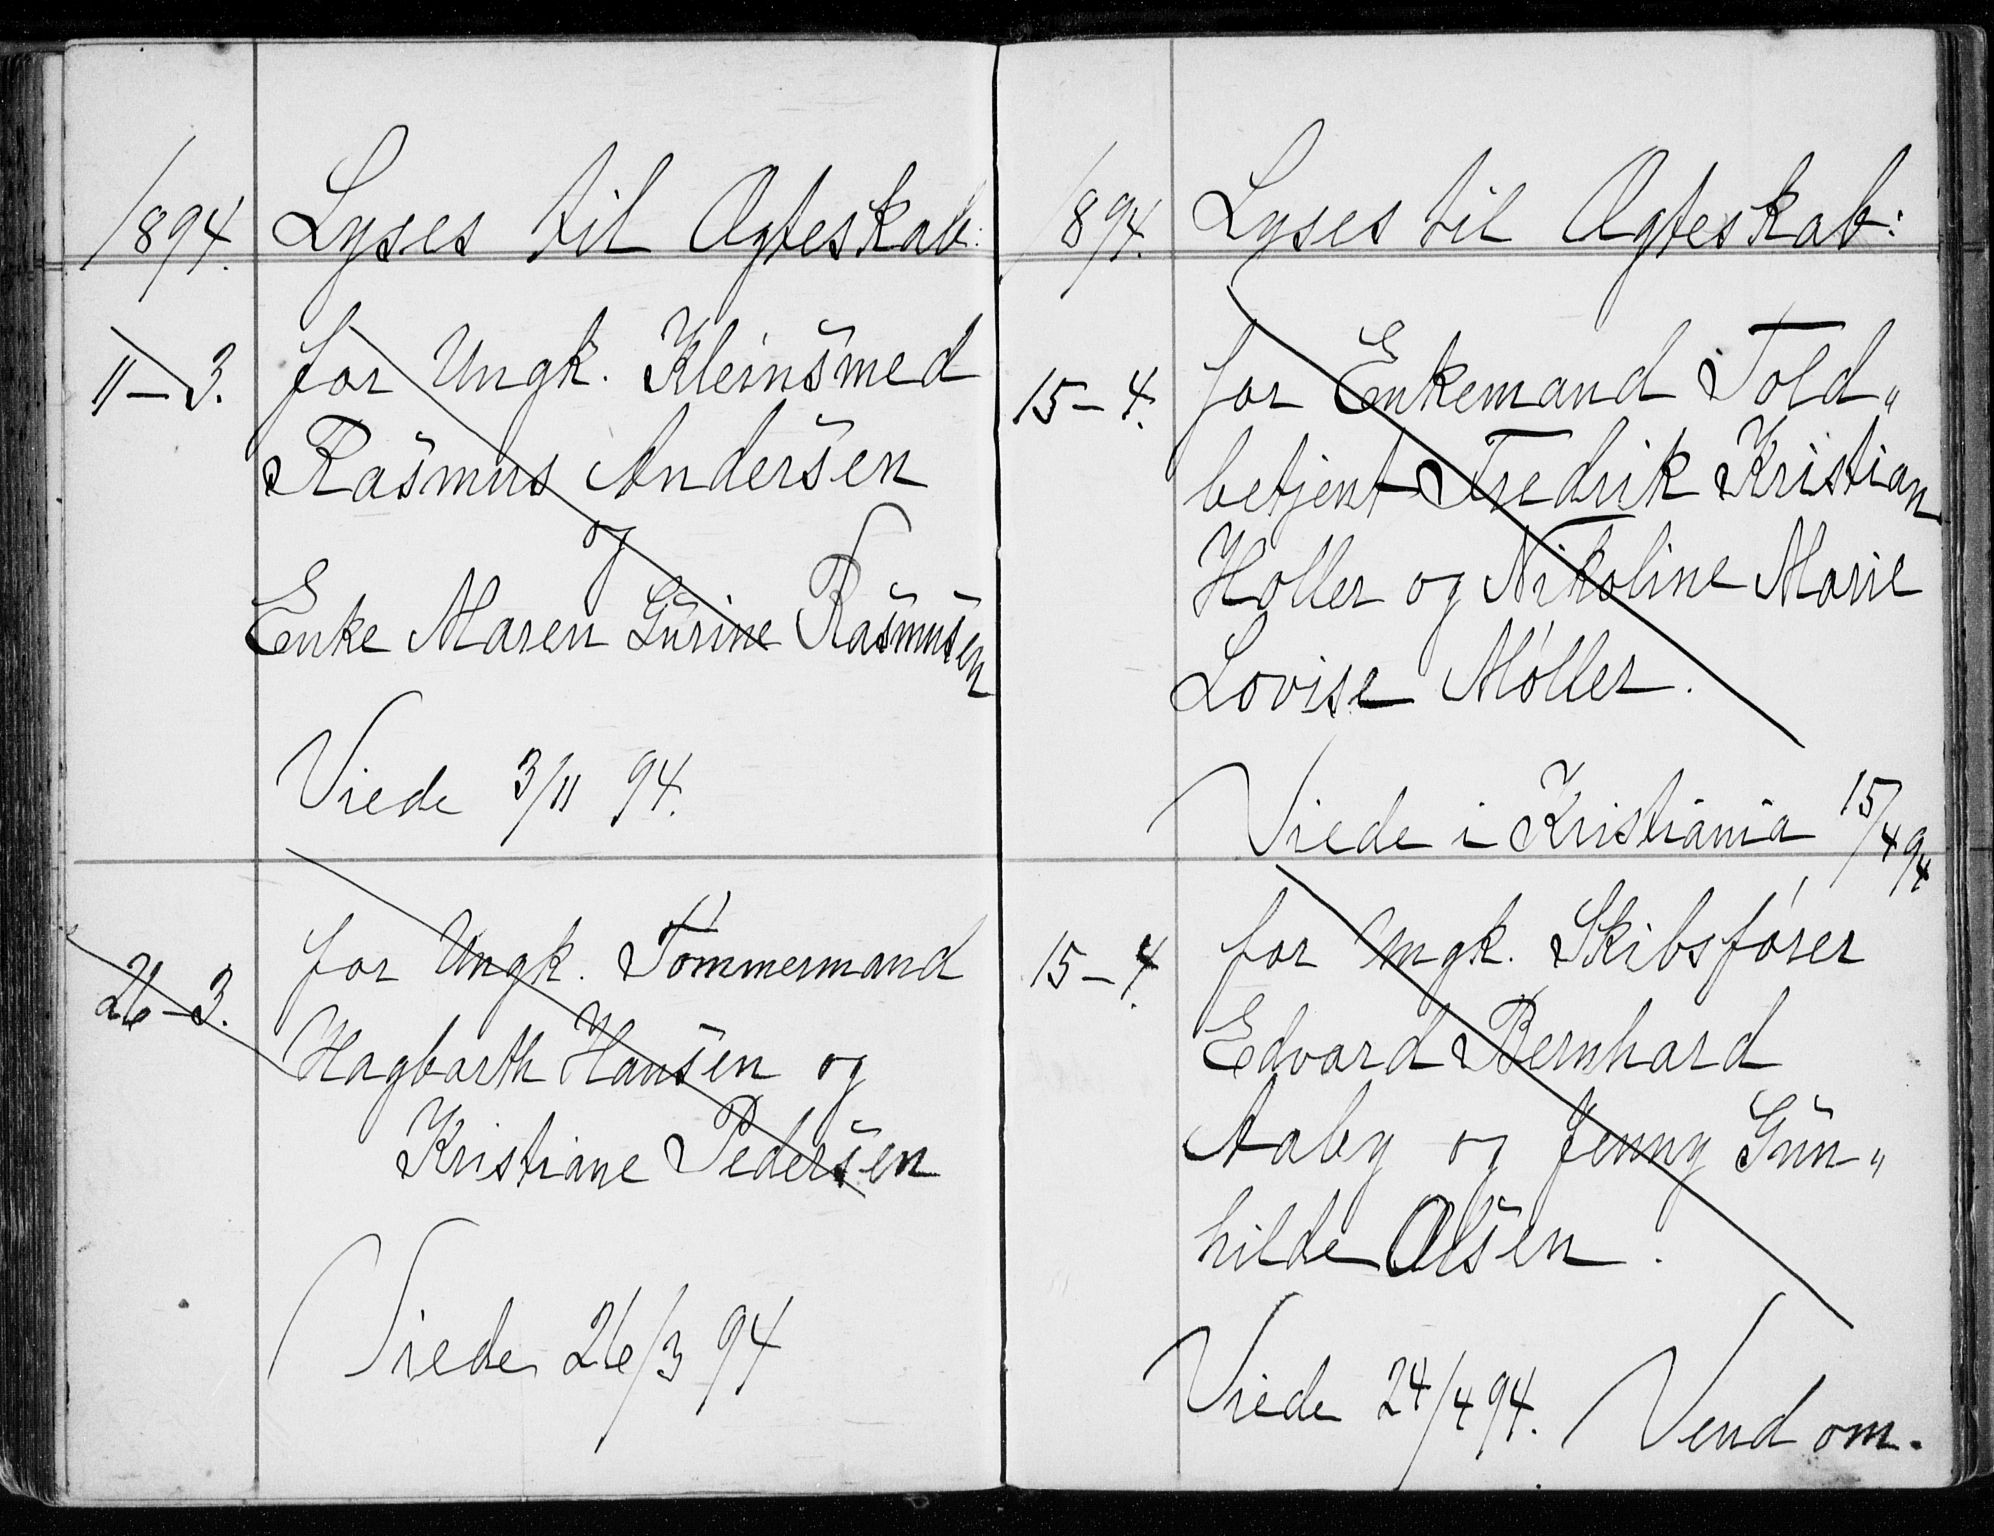 1894. Lyses til Ægteskab:
11-3. for Ungk. Kleinsmed
Rasmus Andersen
og
Enke Maren Gurine Rasmussen
Viede 3/11 94.
26-3. for Ungk. Tømmermand
Hagbarth Hansen og
Kristiane Pedersen
Viede 26/3 94
1894. Lyses til Ægteskab:
15-4. for Enkemand Told„
betjent Fredrik Kristian
Holler og Nikoline Marie
Lovise Møller.
Viede i Kristiania 15/4 94
15-4. for Ungk. Skibsfører
Edvard Bernhard
Aaby og Jenny Gun„
hilde Olsen.
Viede 24/4 94. Vend om.